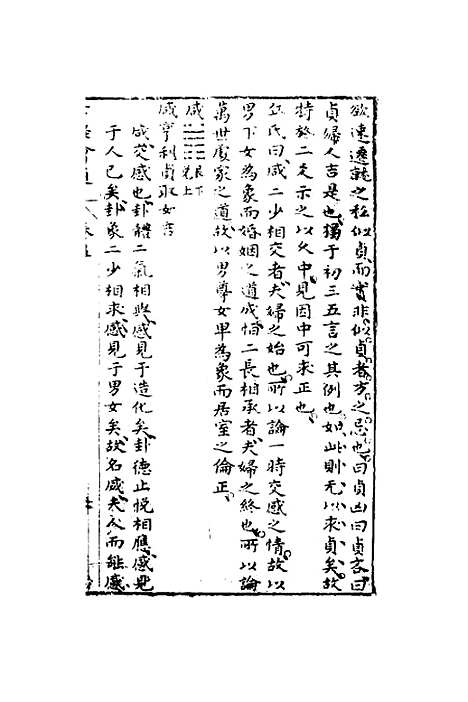 欲速遷就之私似貞而實非似貞者方之忌也曰貞凶曰貞吝曰
貞婦人吉是也獨于初三五言之其例也如此則无以求貞矣故
特於二爻示之以久中見因中可求正也
丘氏曰咸二少相交者夫婦之始也所以論一時交感之情故以
男下女為象而婚姻之道成恒二長相承者夫婦之終也所以論
萬世處家之道故以男尊女卑為象而居室之倫正
咸 艮下 兌上
咸亨利貞取女吉
咸交感也卦體二氣相與感見于造化矣卦德止悅相應感見
于人已矣卦象二少相求感見于男女矣故名咸夫人而能感